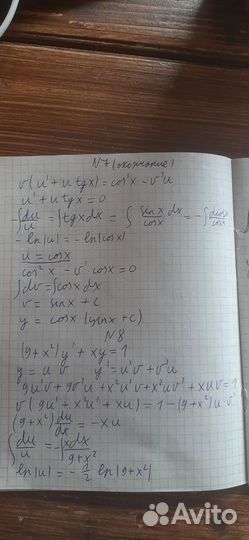 N7 (окончание)
v(u' + u tgx) = cos²x - v'u
u' + u tgx = 0
-∫du/u = ∫tgx dx = ∫ sinx/cosx dx = -∫ dcosx/cosx
- ln|u| = - ln|cosx|
u = cosx
cos²x - v' cosx = 0
∫dv = ∫cosx dx
v = sinx + c
y = cosx (sinx + c)
N8
(9+x²)y' + xy = 1
y = u v y' = u'v + v'u
9u'v + 9v'u + x²u'v + x²uv' + xuv = 1
v(9u' + x²u' + xu) = 1 - (9+x²)u·v'
(9+x²) du/dx = -xu
∫ du/u = -∫ xdx/9+x²
ln|u| = - 1/2 ln|9+x²|
Avito